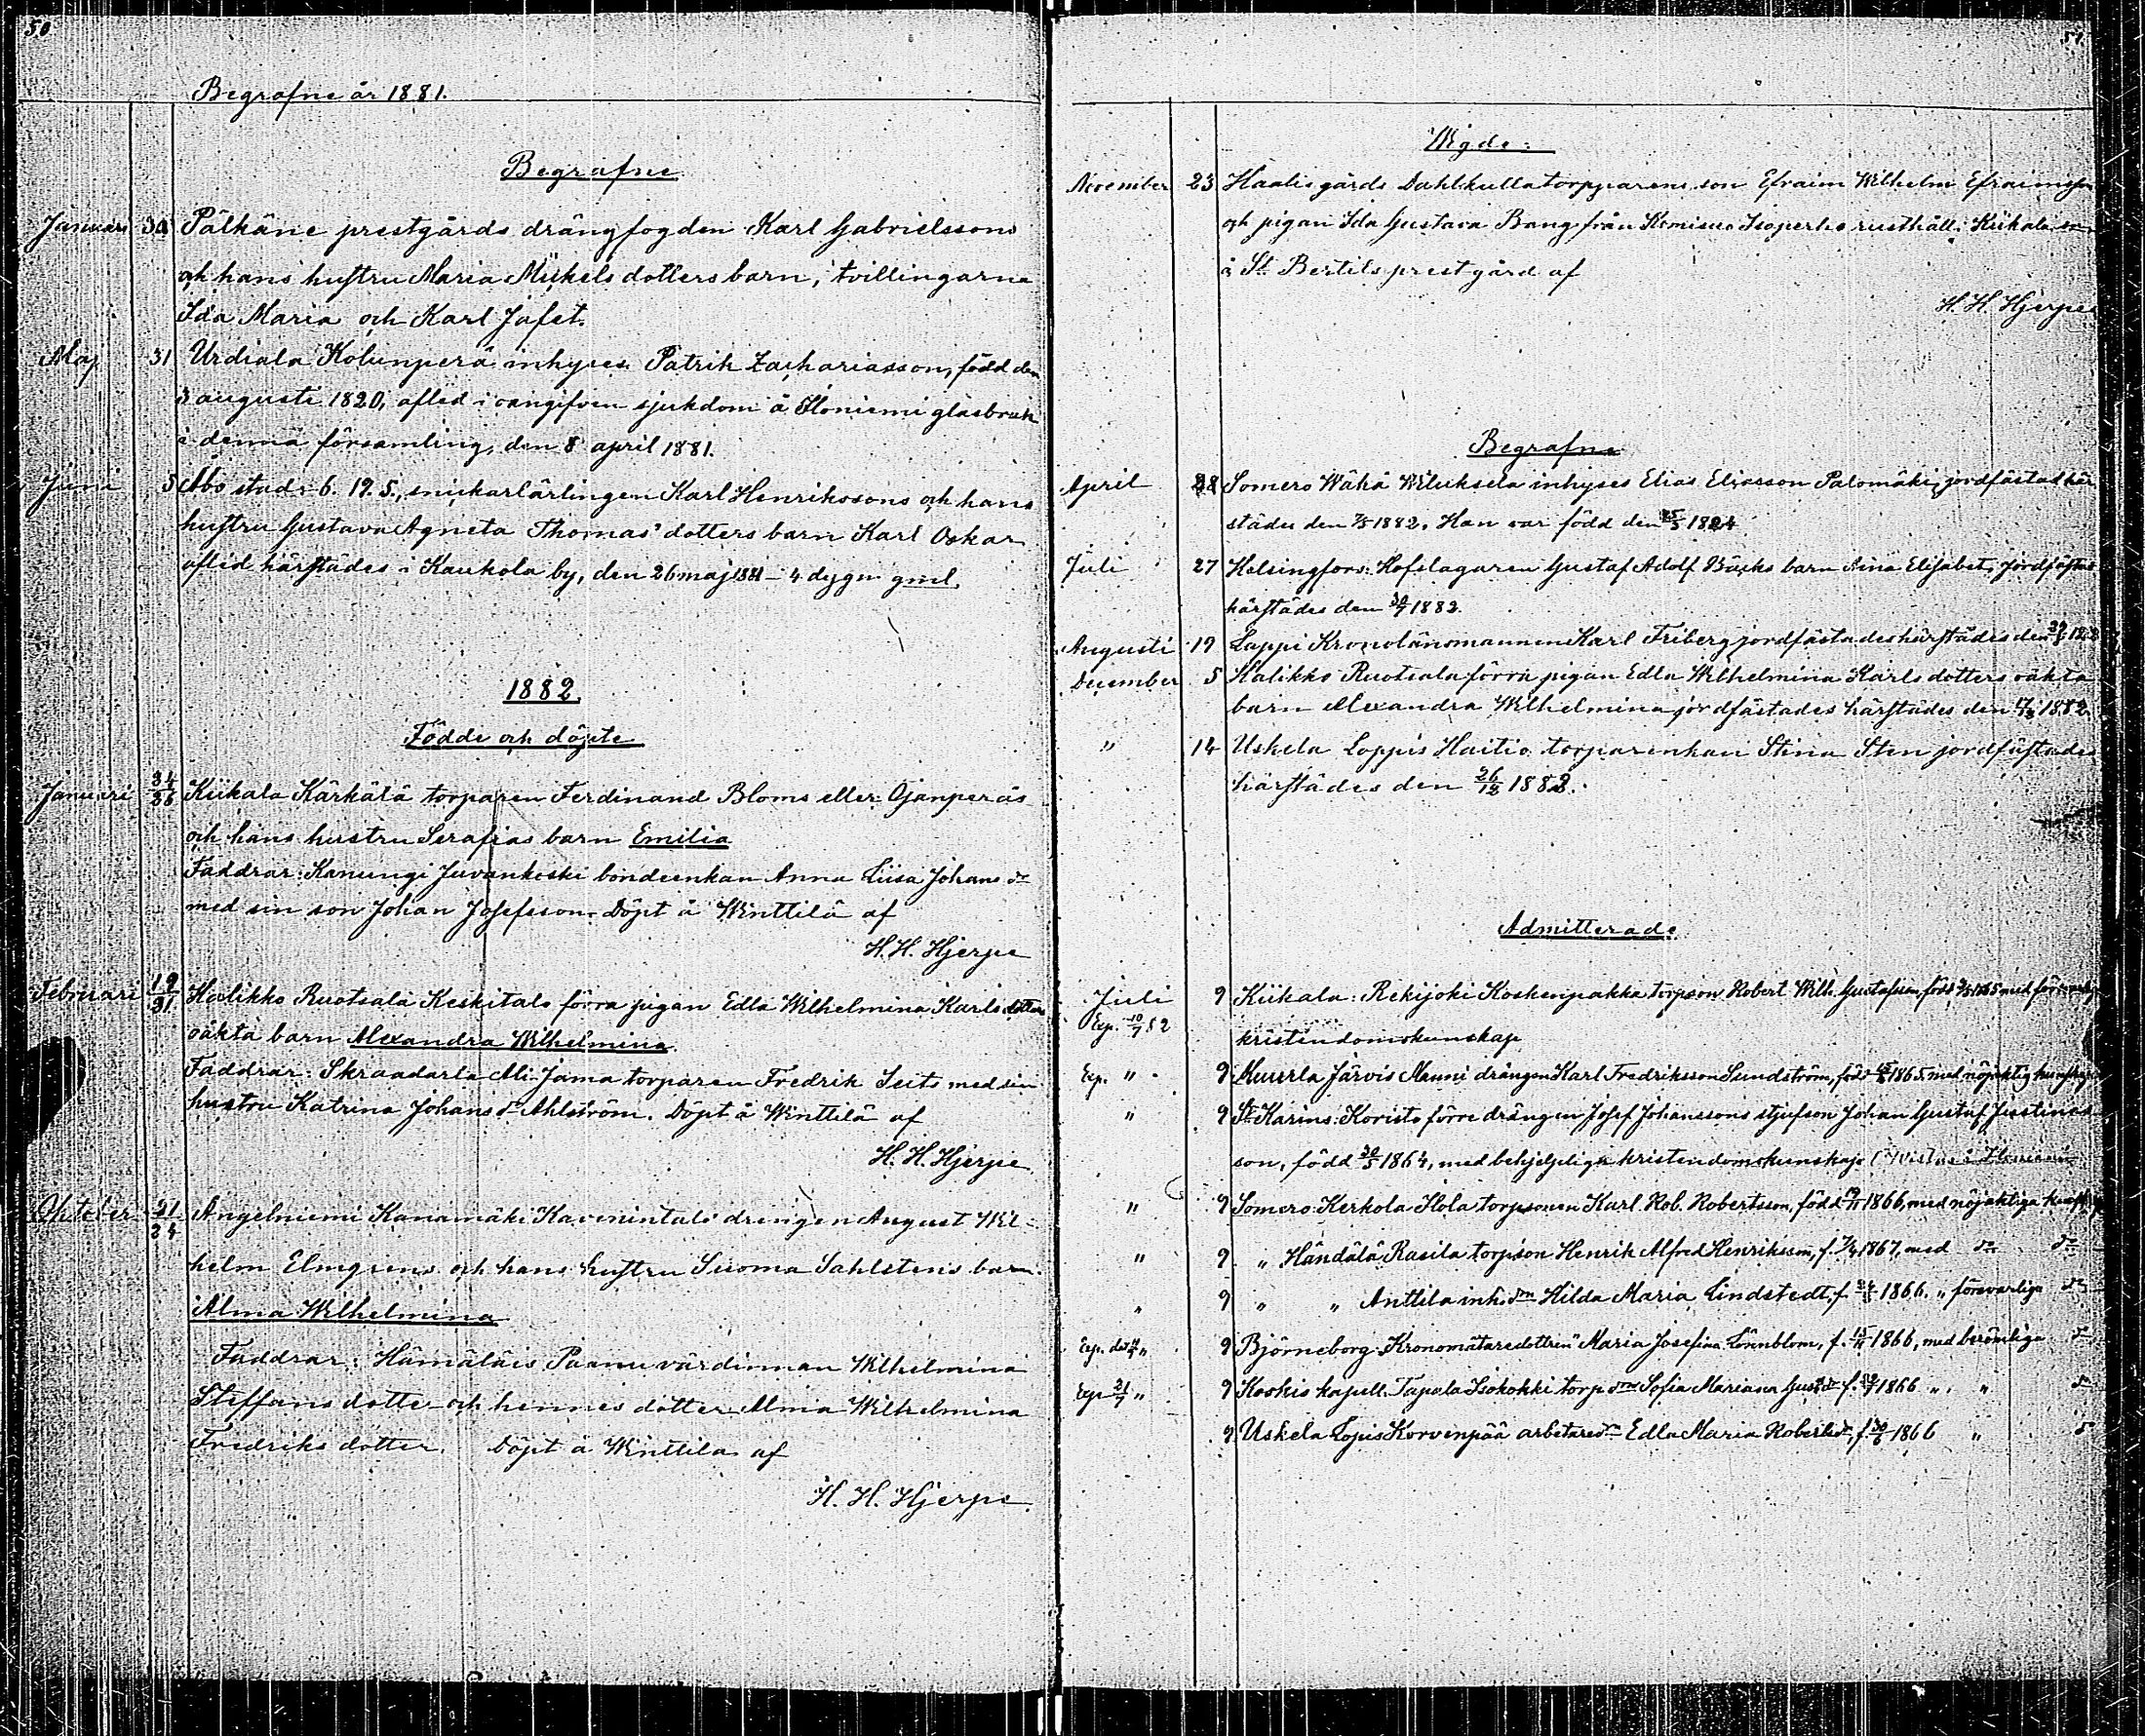 50
Begrafne år 1881.
Begrafne
Januari 30 Pälkäne prestgårds drängfogden Karl Gabrielssons
och hans hustru Maria Mickels dotters barn, tvillingarna
Ida Maria och Karl Jafet.
Maj 31 Urdiala Kolunperä inhyses Patrik Zachariasson, född den
3 augusti 1820, afled i oangifven sjukdom å Iloniemi glasbruk
i denna församling, den 8 april 1881.
Juni 5 Åbo stad: 6. 19. 5., snickarlärlingen Karl Henrikssons och hans
hustru Gustava Agneta Thomas dotters barn Karl Oskar
afled härstädes i Kaukola by, den 26 maj 1881 – 4 dygn gml
1882.
Födde och döpte
Januari Kiikala Kärkälä torparen Ferdinand Bloms eller Ojanperäs
och hans hustru Serafias barn Emilia
Faddrar: Kanungi Juvankoski bondeenkan Anna Liisa Johans dr
med sin son Johan Josefsson. Döpt å Winttilä af
H. H. Hjerpe
Februari 19/21 Halikko Ruotsala Keskitalo förra pigan Edla Wilhelmina Karlsdotters
oäkta barn Alexandra Wilhelmina.
Faddrar: Skraadarla Ali-Jama torparen Fredrik Seits med sin
hustru Katrina Johans dr Ahlström. Döpt å Winttilä af
H. H. Hjerpe.
Oktober 21/24 Angelniemi Kanamäki Kavenintalo drengen August Wil-
helm Elmgrens och hans hustru Suoma Sahlstens barn
Alma Wilhelmina
Faddrar: Hämäläis Paanu värdinnan Wilhelmina
Steffans dotter och hennes dotter Alma Wilhelmina
Fredriks dotter. Döpt å Winttilä af
H. H. Hjerpe
51
Wigde:
November 23 Haalis gårds Dahlkulla torpparens son Efraim Wilhelm Efraimsson
och pigan Ida Gustava Bang från Komisuo Isoperho rusthåll i Kiikala
å St. Bertils prestgård af
H. H. Hjerpe
Begrafne
April 28 Somero Wähä Wiluksela inhyses Elias Eliasson Palomäki, jordfästad här
städes den 7/5 1882. Han var född den 1824
Juli 27 Helsingfors: Hofslagaren Gustaf Adolf Bäcks barn Aina Elisabet, jordfästes
härstädes den 30/7 1882.
Augusti 19 Lappi Kronolänsmannen Karl Friberg jordfästades härstädes den
December 5 Halikko Ruotsala förra pigan Edla Wilhelmina Karls dotters oäkta
barn Alexandra Wilhelmina jordfästades härstädes den 1882
" 14 Uskela Loppis Haitio torparenkan Stina Sten jordfästades
härstädes den 26/12 1882.
Admitterade
Juli 9 Kiikala: Rekijoki Koskenpakka torpson Robert Wilh. Gustafsson, född
Exp. 10/7 82 kristendomskunskap
Exp. " 9 Muurla Järvis Mauni drängen Karl Fredriksson Sundström, född 1865 med nöjaktig
" 9 St. Karins: Koristo förre drängen Josef Johanssons styfson Johan Gustaf Justines
son, född 30/5 1864, med behjelpliga kristendomskunskap
" 9 Somero: Kerkola Hola torpsonen Karl Rob. Robertsson, född 1866, med nöjaktiga
" 9 " Händälä Rasila torpson Henrik Alfred Henriksson, f. 1867, med do do
" 9 " " Anttila inh. dn Hilda Maria Lindstedt, f. 1866. " försvarliga do
Exp. 9 Björneborg "Kronomätaredottren" Maria Josefina Lönnblom, f. 15/11 1866, med berömliga do
Exp 21/7 " 9 Koskis kapell. Tapala Isokokki torp dn Sofia Mariana Gust. dr f. 1866 " " do
9 Uskela Lopis Korvenpää arbetaredn Edla Maria Roberts dr, f. 1866 " do